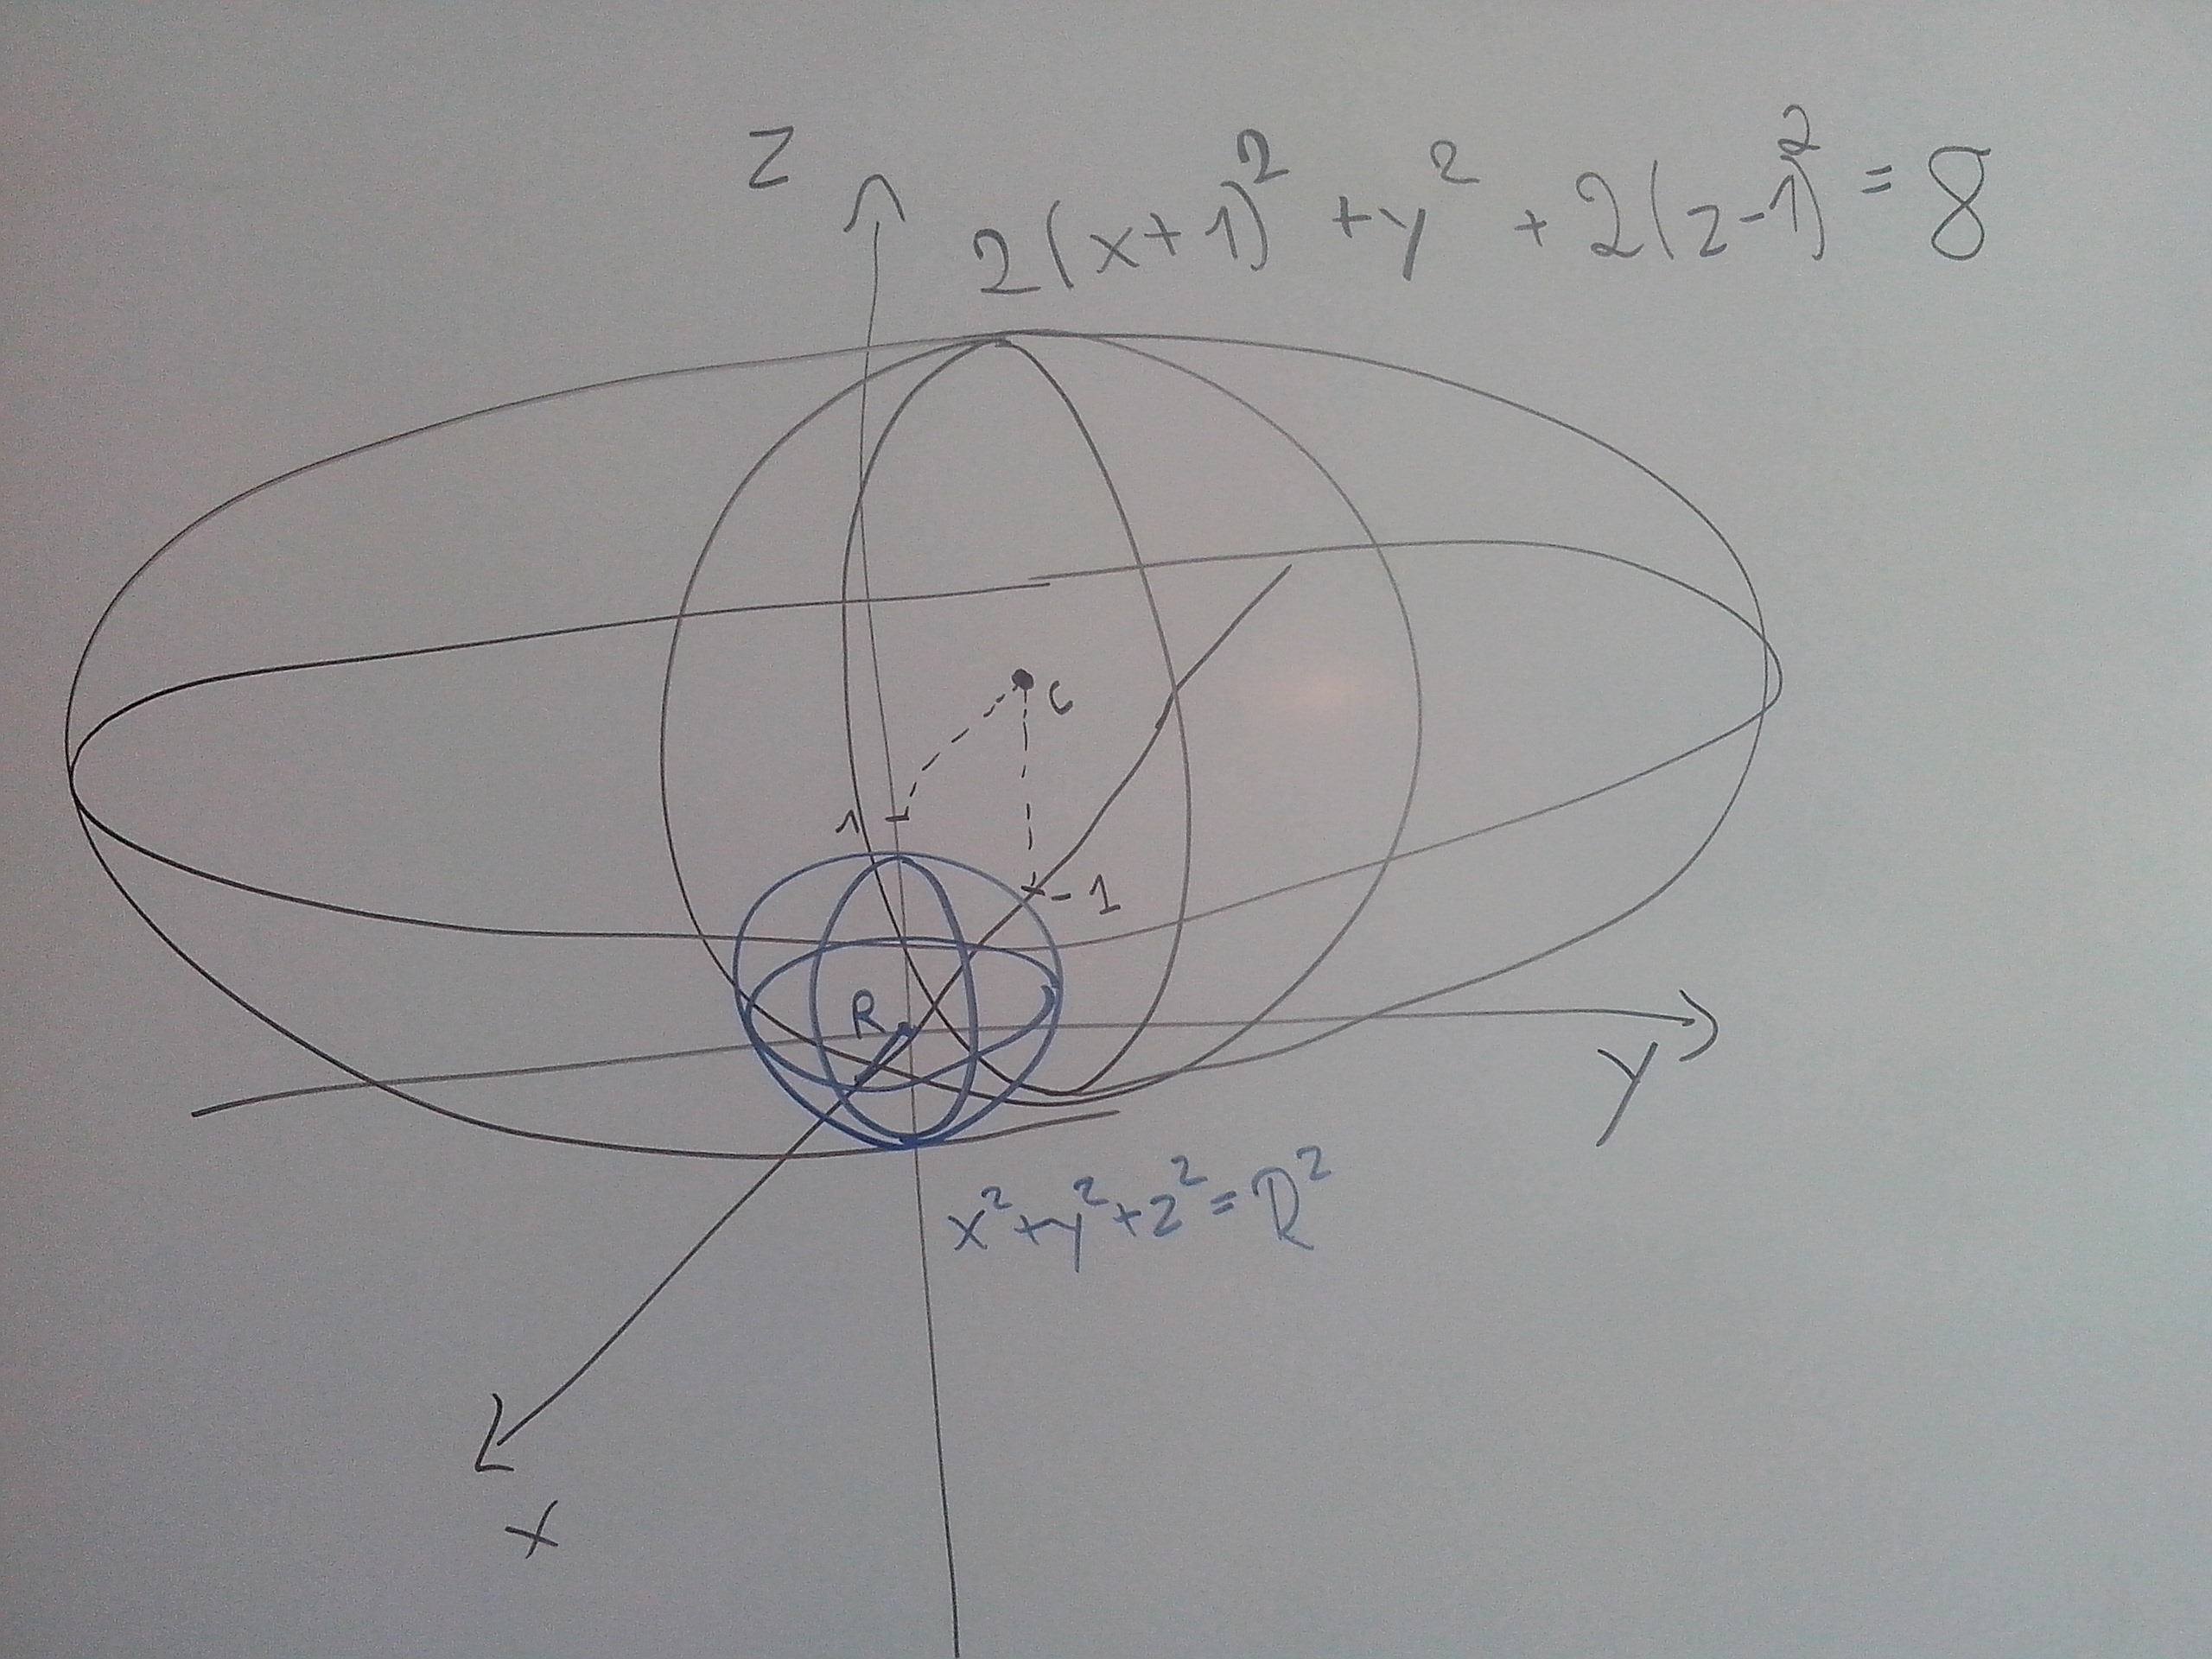 z
2(x+1)² + y² + 2(z-1)² = 8
C
1
-1
R
y
x²+y²+z²=R²
x